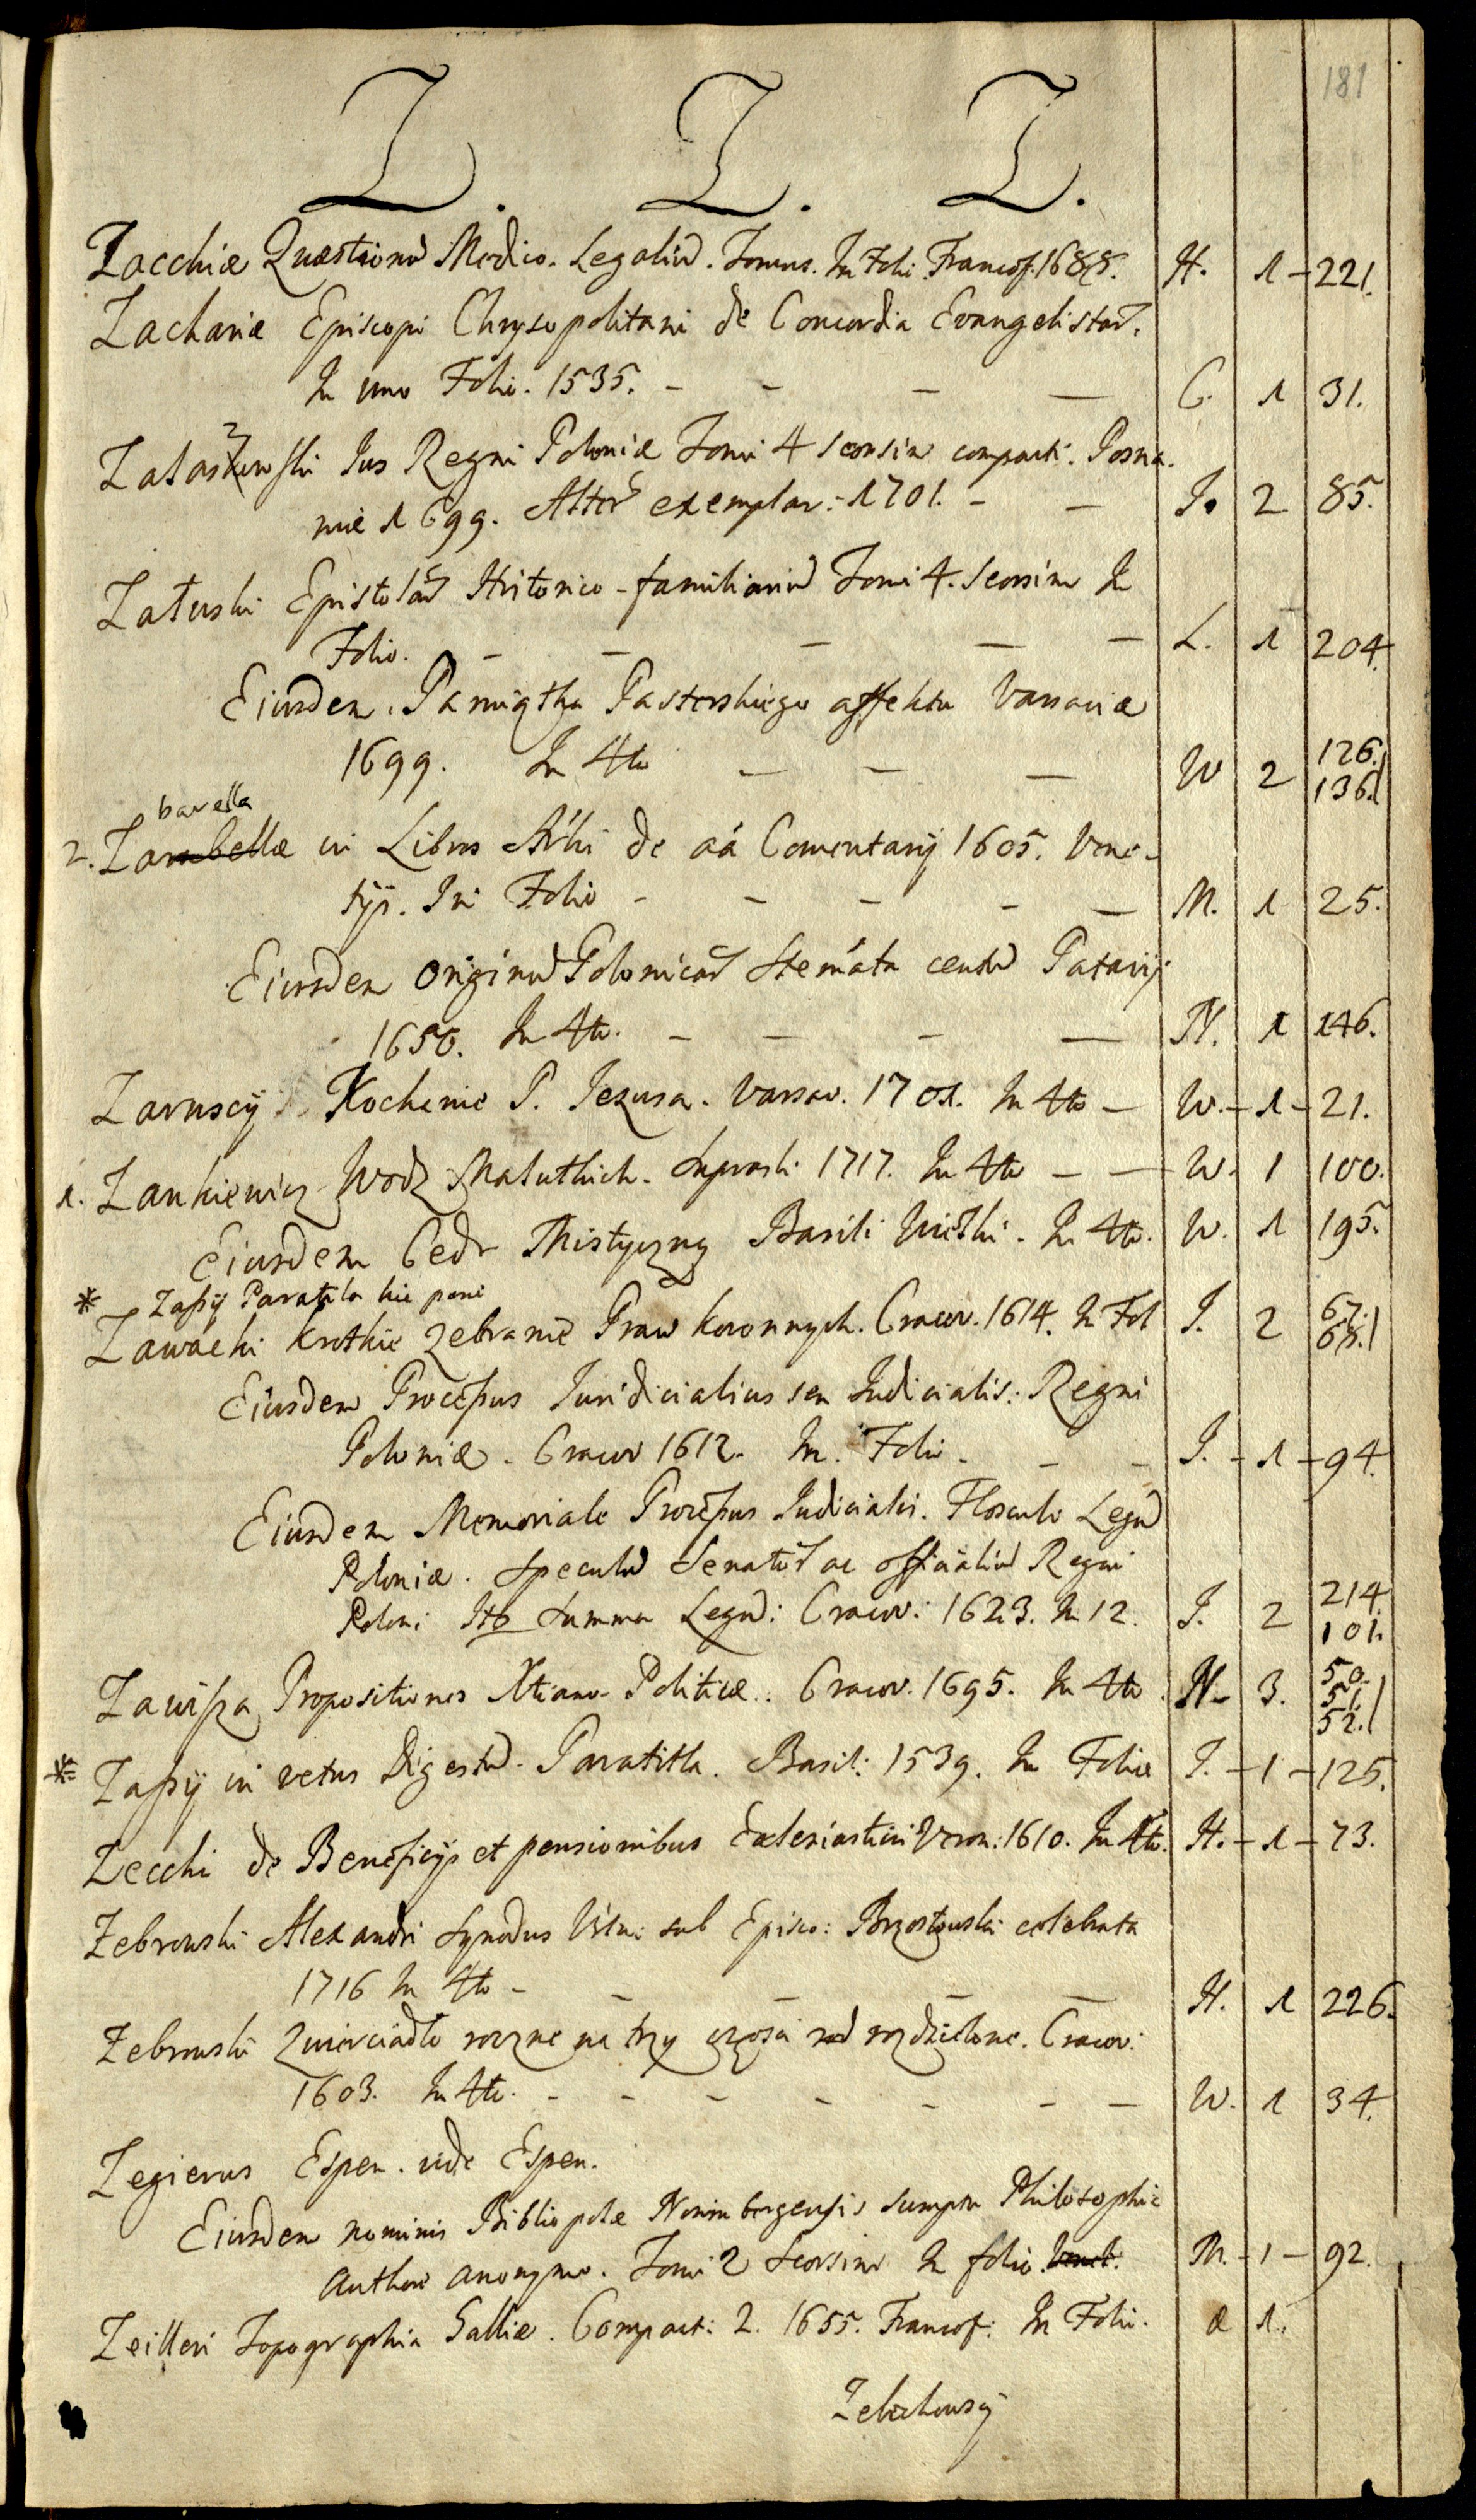 181
Z. Z. Z.
Zacchiæ Quæstionũ Medico-Legaliũ. Tomus. In Folio Francof. 1688. H. 1 – 221.
Zachariæ Episcopi Chrysopolitani de Concordia Evangelistar̃.
In uno Folio. 1535. – – – — C. 1 31.
Załaszowski Jus Regni Poloniæ Tomi 4 seorsim compacti. Posna-
niæ 1699. Alter̃ exemplar: 1701. – — J. 2 85.
Załuski Epistolar̃ Historico-familiariũ Tomi 4. Seorsim In
Folio. – – – — — L. 1 204.
Eiusdem. Pamiątka Pasterskiego affektu Varsaviæ
1699. In 4to — — — W 2 126. 136.
barella
2. Zambellæ in Libros Ar̃lis de aã Comentarij 1605. Vene-
tijs. In Folio – – – – — M. 1 25.
Eiusdem Originũ Polonicar̃ Stem̃ata centũ Patavij
1656. In 4to. – — – — N. 1 146.
Zaruscij Kochanie P. Jezusa. Varsav. 1701. In 4to — W. – 1 – 21.
1. Zankiewicz Wodz Malutkich. Suprasli 1717. In 4to — — W. 1 100.
Eiusdem Cedr Mistyczny Basili Wielki. In 4to. W. 1 195.
* Zaßij Paratitla hic pone
Zawacki krotkie zebranie Praw koronnych. Cracov. 1614. In Fol J. 2 67. 68.
Eiusdem Proceßus Juridicialius seu Judicialis: Regni
Poloniæ. Cracov 1612. In. Folio. – – J. – 1 – 94.
Eiusdem Memoriale Proceßus Judicialis. Flosculi Legũ
Poloniæ. Speculũ Senator̃ ac officialiũ Regni
Poloni Itẽ Summa Legũ: Cracov: 1623. In 12. J. 2 214. 101.
Zawißa Propositiones Xtiano-Politicæ. Cracov. 1695. In 4to. N. 3. 50. 51. 52.
* Zaßij in vetus Digestũ. Paratitla. Basil: 1539. In Folio J. – 1 – 125.
Zecchi de Beneficijs et pensionibus Ecclesiasticis Veron: 1610. In 4to. H. – 1 – 73.
Zebrowski Alexandri Synodus Vilnæ sub Episco: Brzostowski celebrata
1716 In 4to – – – – — H. 1 226.
Zebrowski Zwierciadło roczne na trzy częsci rozdzielone. Cracov:
1603. In 4to. – – – – – – — W. 1 34.
Zegierus Espen. vide Espen.
Eiusdem nominis Bibliopolæ Norimbergensis sumptu Philosophia
Authore anonymo. Tomi 2 Seorsim In folio. M. – 1 – 92.
Zeilleri Topographia Galliæ. Compact: 2. 1655. Francof: In Folio. æ 1.
Zelechowscij